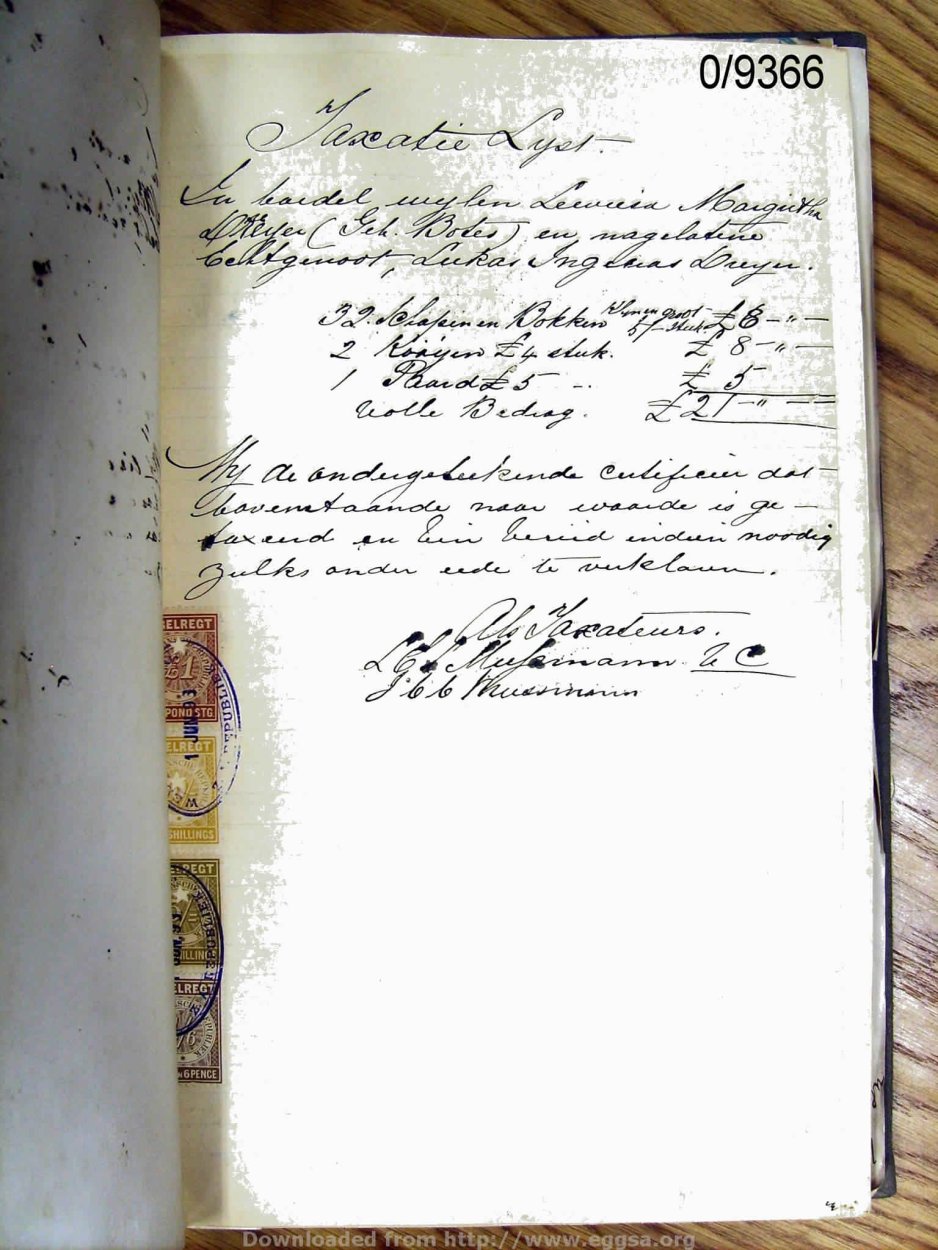 0/9366
Taxatie Lyst.
In boedel wylen Lewiesa Margritha
Dreyer (Geb. Botes) en nagelatene
Echtgenoot, Lukas Ingenias Dreyer.
32. Schapen en Bokken Klyn en groot 5/- stuk £ 8 – " –
2 Kooijen £4 stuk. £ 8 – " –
1 Paard £5 – .. £ 5
Volle Bedrag. £21 – " –
Wy de ondergeteekende certificeer dat
bovenstaande naar waarde is ge–
taxeerd en ben bereid indien noodig
zulks onder eede te verklaren.
Als Taxateurs.
Mussmann V C
Mussmann
ELREGT
£1
POND STG
1 JUN 93
ELREGT
SHILLINGS
ELREGT
ILLING
ELREGT
/6
N 6 PENCE
Downloaded from http://www.eggsa.org